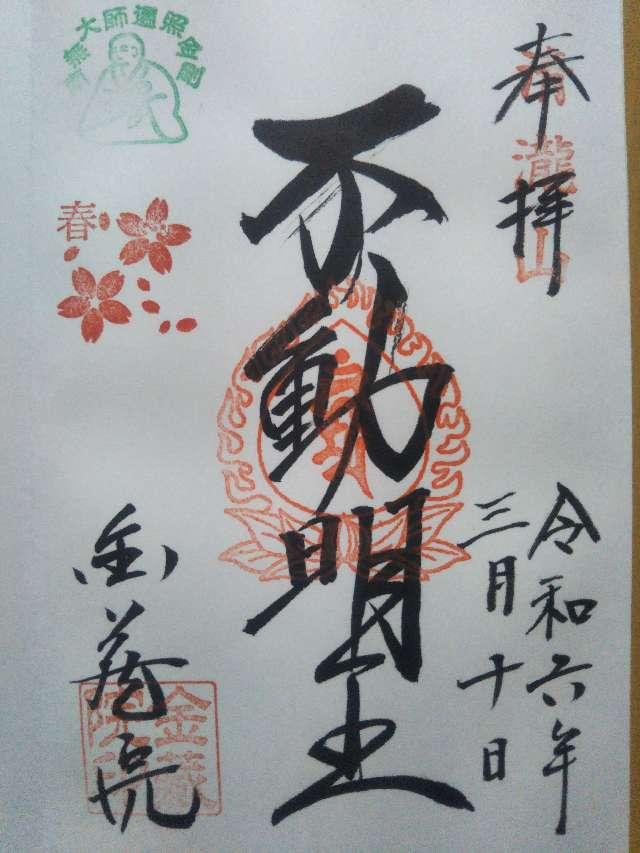 奉拝
瀧山
令和六年
三月十日
不動明王
南無大師遍照金剛
春
金蔵院
金蔵
院印